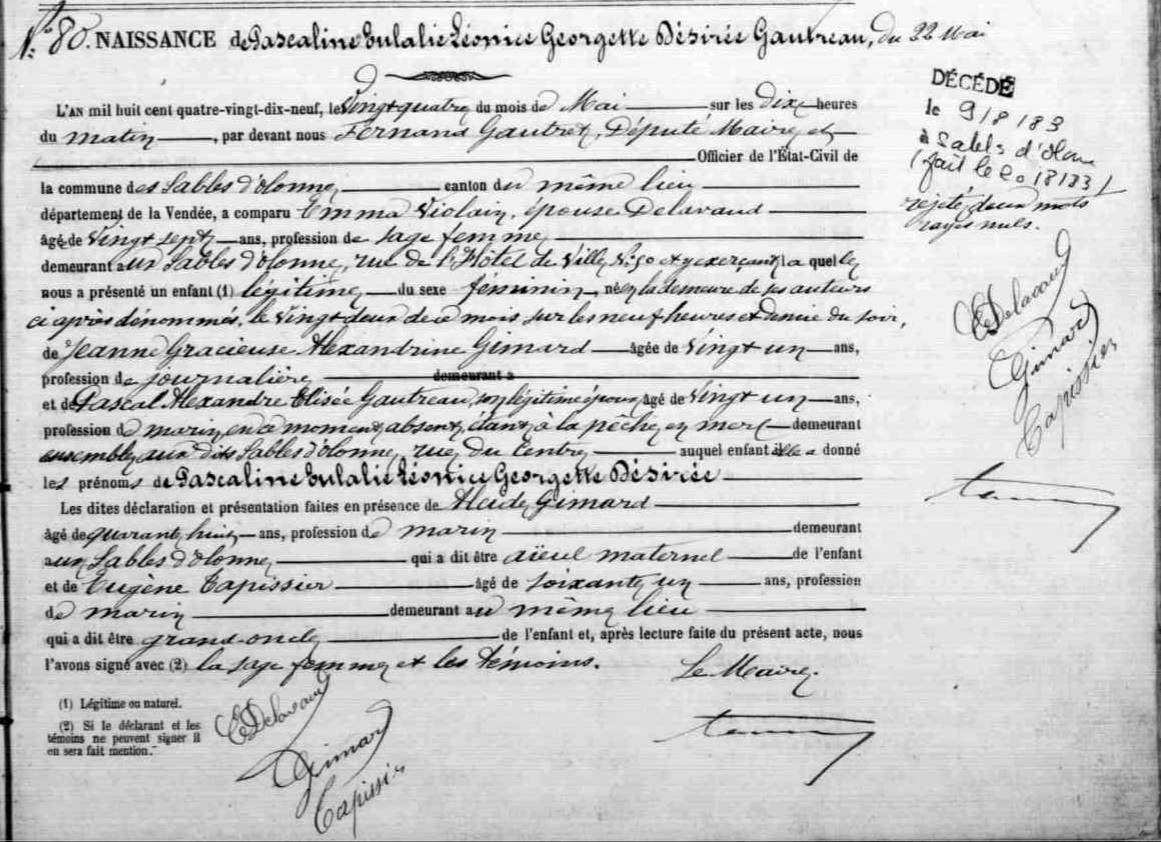 N.° 80. NAISSANCE de Pascaline Eulalie Léonice Georgette Désirée Gautreau, du 22 Mai
L'AN mil huit cent quatre-vingt-dix-neuf, le Vingt quatre du mois de Mai sur les dix heures
du matin, par devant nous Fernand Gautret, Député Maire, et
Officier de l'État-Civil de
la commune des Sables d'olonne, canton du même lieu
département de la Vendée, a comparu Emma Violain, épouse Delavaud
âgée de Vingt sept ans, profession de sage femme
demeurant aux Sables d'olonne, rue de l'Hôtel de Ville, N.° 50 et y exerçant, laquelle
nous a présenté un enfant (1) légitime du sexe féminin, né en la demeure de ses auteurs
ci après dénommés, le Vingt deux de ce mois sur les neuf heures et demie du soir,
de Jeanne Gracieuse Alexandrine Gimard âgée de Vingt un ans,
profession de journalière demeurant à
et de Pascal Alexandre Elisée Gautreau, son légitime époux, âgé de Vingt un ans,
profession de marin, en ce moment absent, étant à la pêche en mer demeurant
ensemble aux dits Sables d'olonne, rue du Centre auquel enfant elle a donné
les prénoms de Pascaline Eulalie Léonice Georgette Désirée
Les dites déclaration et présentation faites en présence de Alcide Gimard
âgé de quarante huit ans, profession de marin demeurant
aux Sables d'olonne, qui a dit être aïeul maternel de l'enfant
et de Eugène Tapissier âgé de soixante un ans, profession
de marin demeurant au même lieu
qui a dit être grand-oncle de l'enfant et, après lecture faite du présent acte, nous
l'avons signé avec (2) la sage femme et les témoins.
Le Maire,
(1) Légitime ou naturel.
(2) Si le déclarant et les
témoins ne peuvent signer il
en sera fait mention.
E Delavaud
Gimard
Tapissier
DÉCÉDÉ
le 9/8/83
à Sables d'Olonne
(fait le 20/8/83)
rejeté, deux mots
rayés nuls.
E Delavaud
Gimard
Tapissier